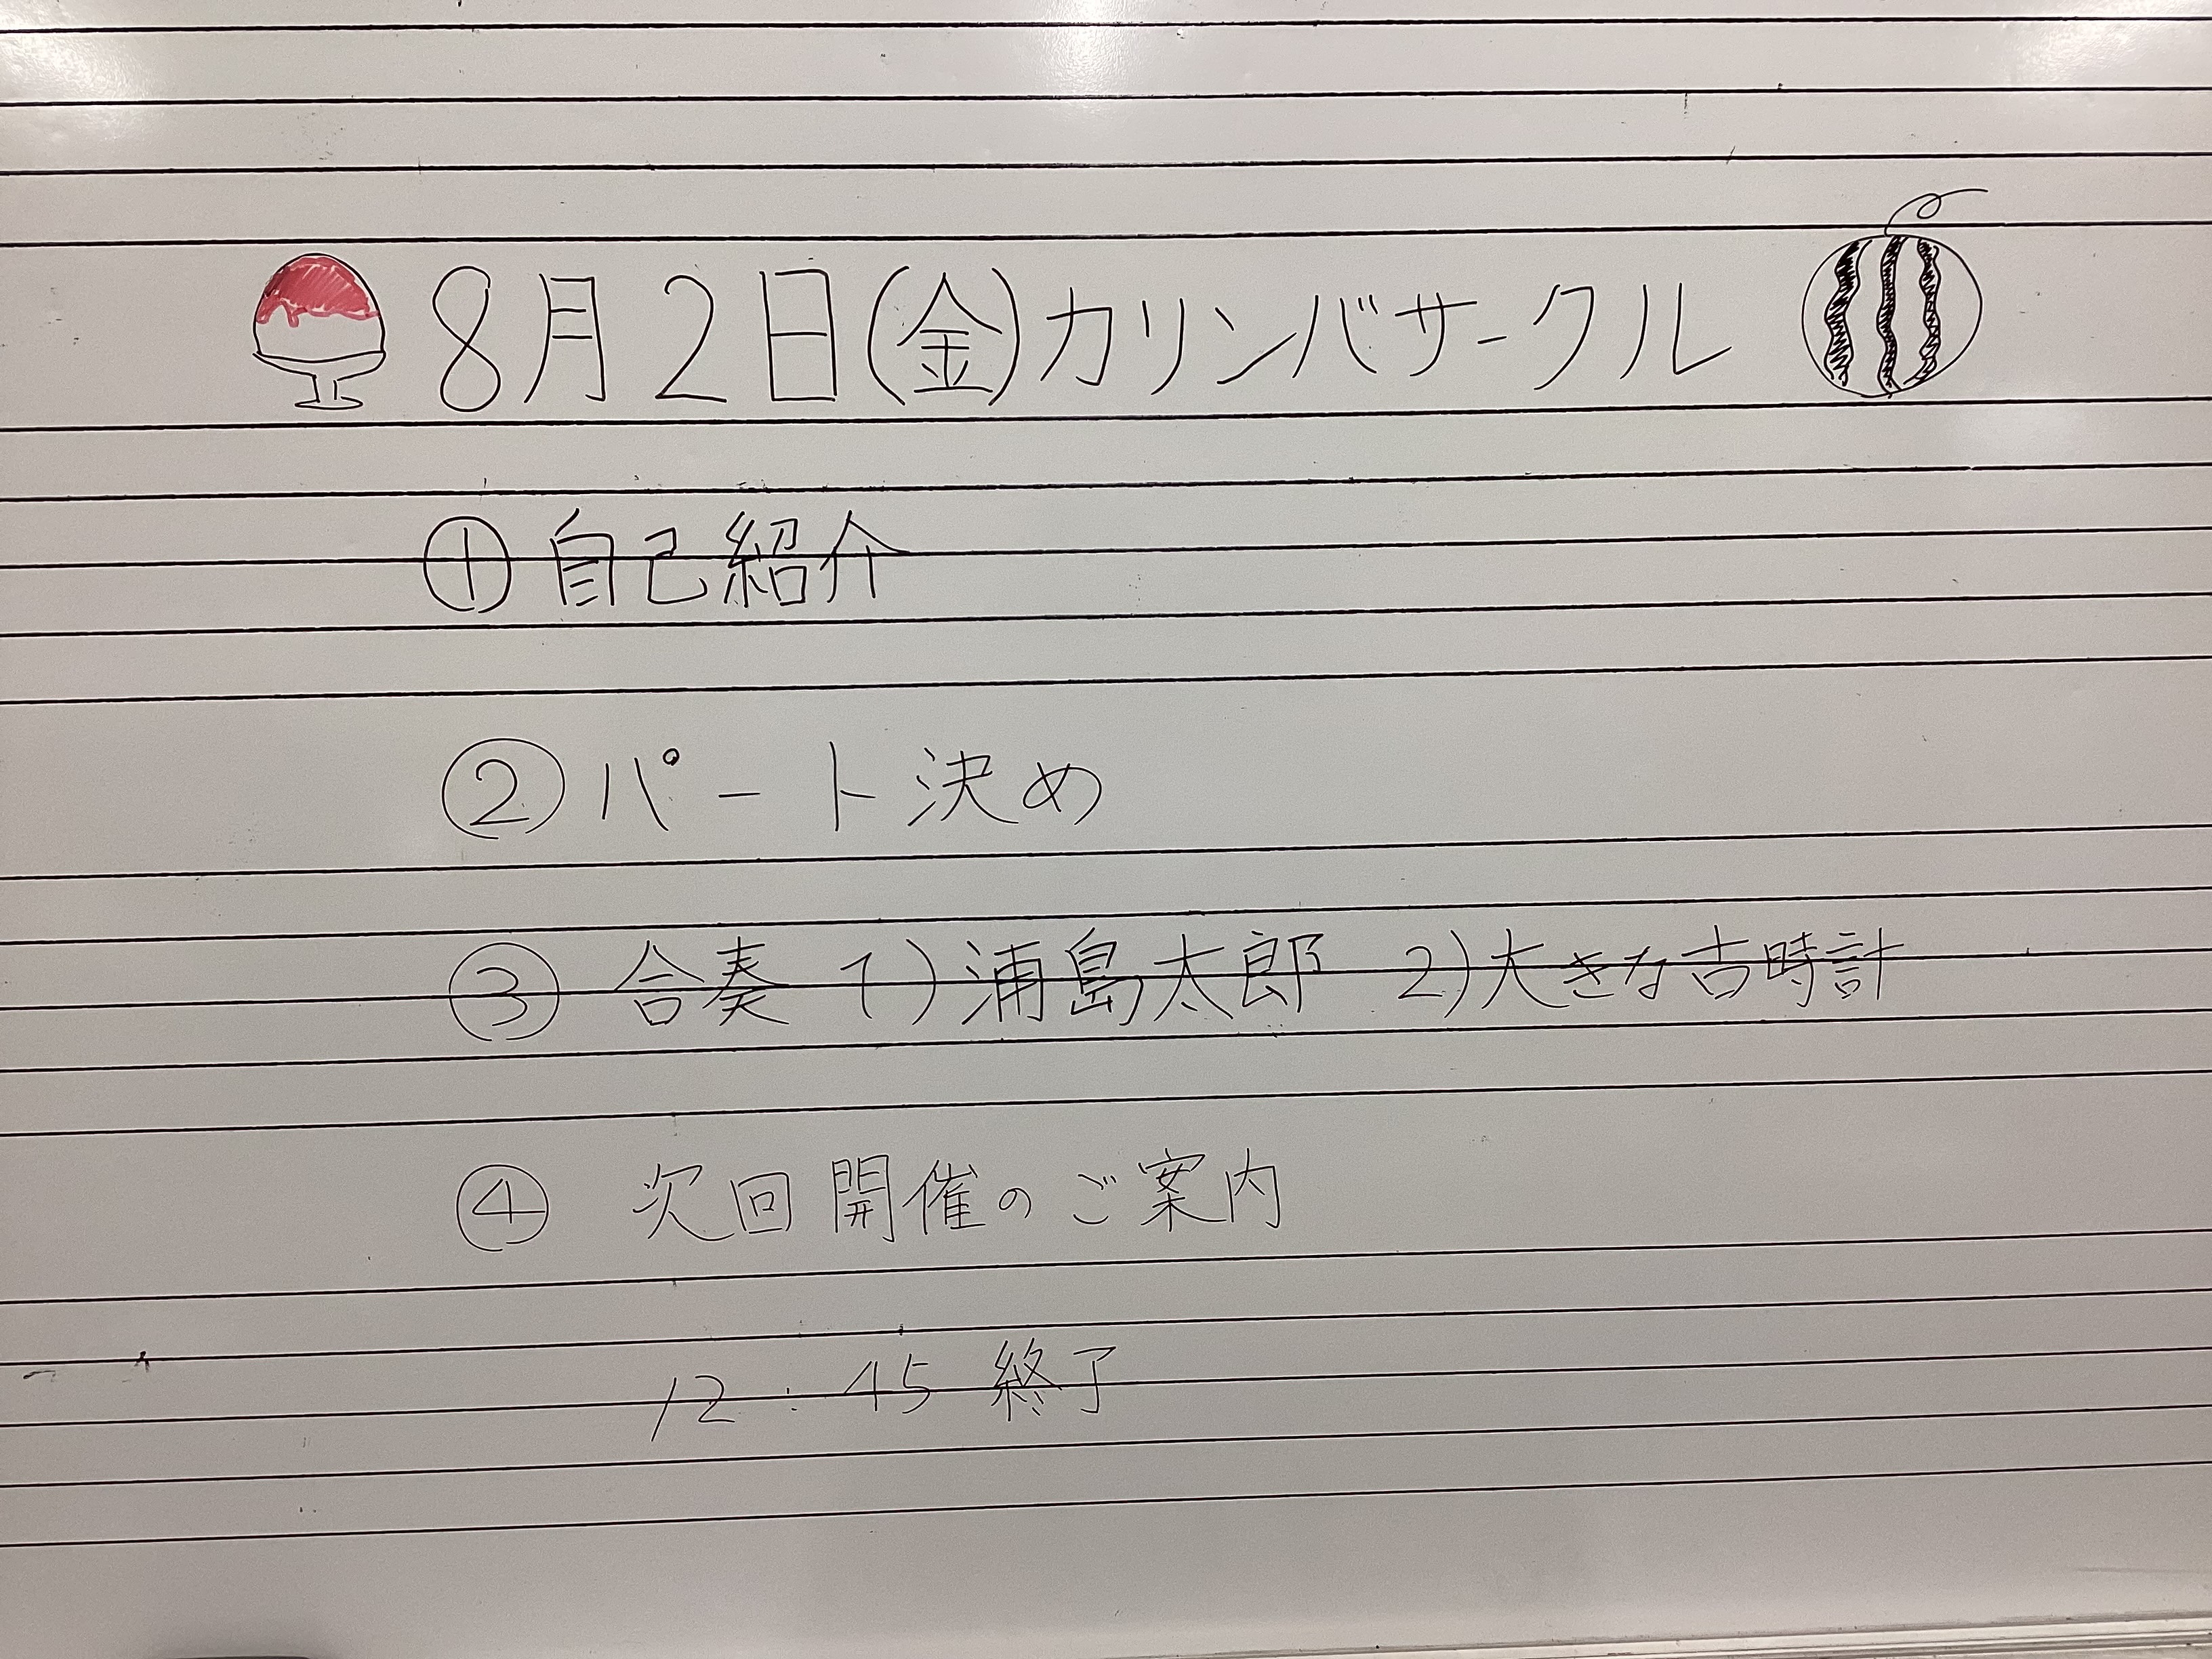 8月2日(金)カリンバサークル
①自己紹介
②パート決め
③ 合奏 1)浦島太郎 2)大きな古時計
④ 次回開催のご案内
12:45 終了